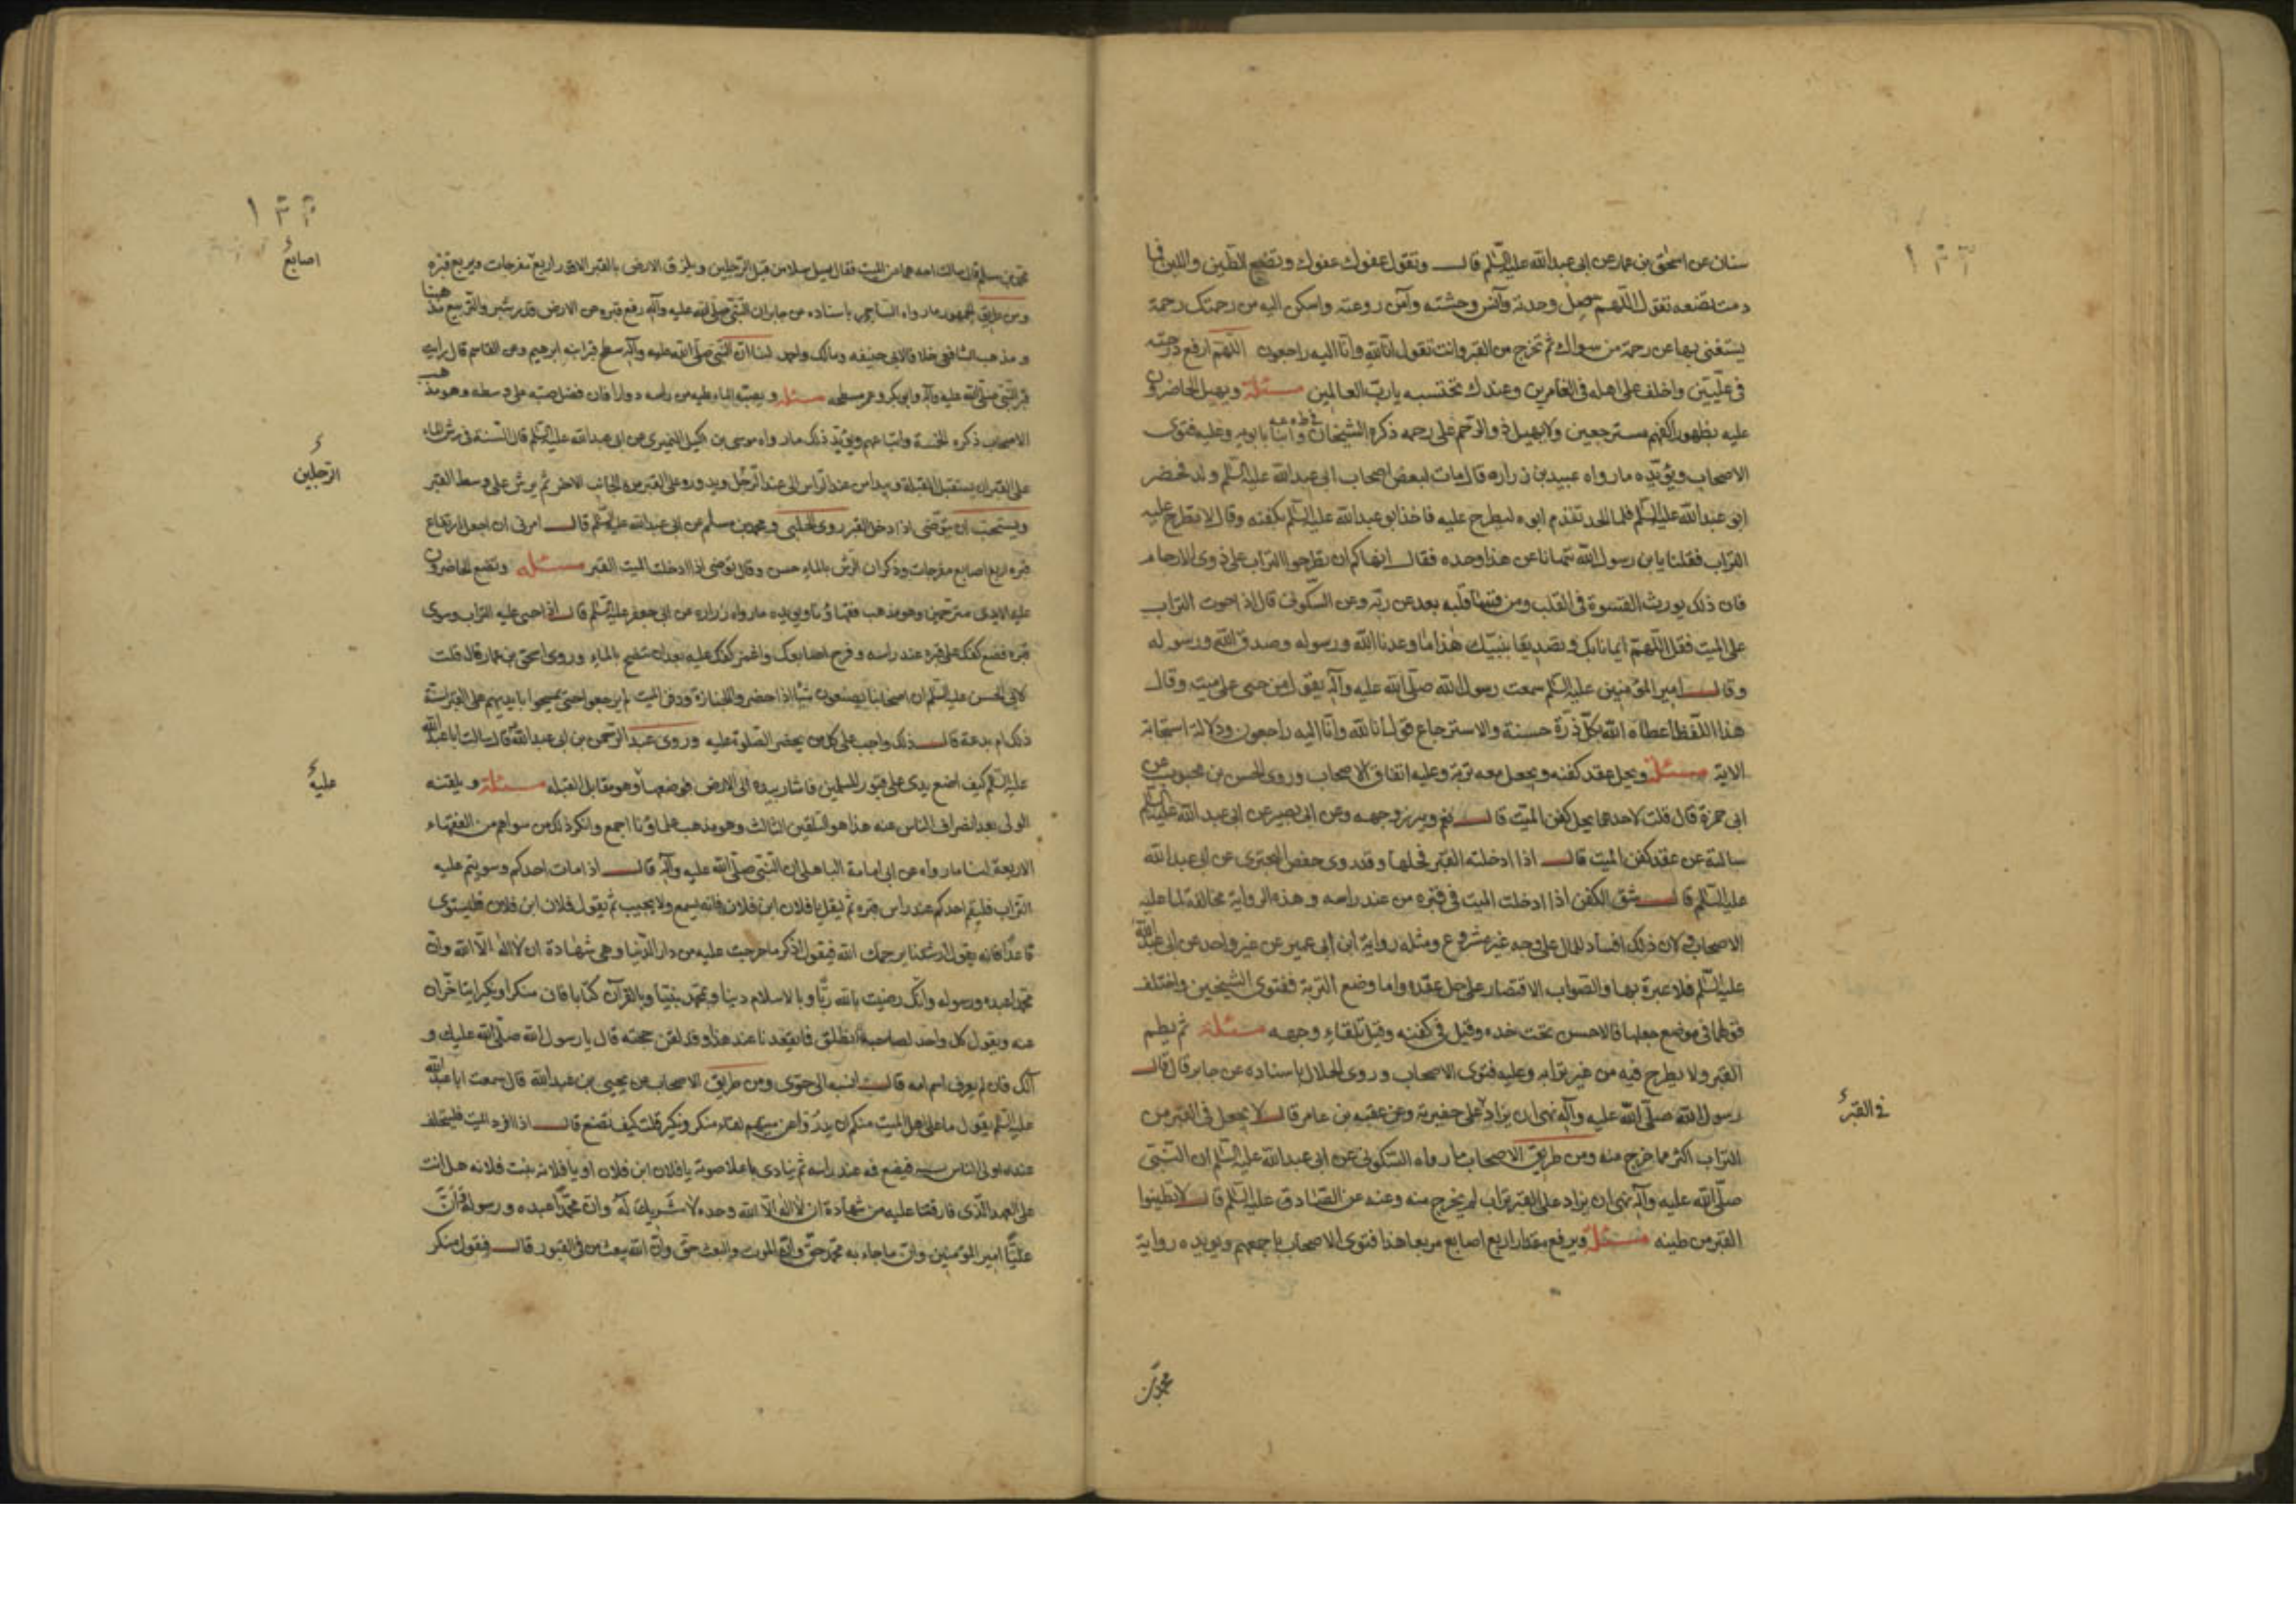 ١٣٢
سنان عن اسحق بن عمار عن ابى عبدالله عليه السّلم قال وتقول عفوك عفوك وتضع الطين واللبن فما
دمت تضعه تقول اللّهم صل وحدته وآنس وحشته وآمن روعته واسكن اليه من رحمتك رحمة
يستغنى بها عن رحمة من سواك ثم تخرج من القبر وانت تقول انا لله وانا اليه راجعون اللّهمّ ارفع درجته
فى علّيّين واخلف على اهله فى الغابرين وعندك نحتسبه يا ربّ العالمين مسئلة ويهيل الحاضرون
عليه بظهور اكفهم مسترجعين ولا يهيل ذو الرحم على رحمه ذكره الشيخان وابنا بابويه وعليه فتوى
الاصحاب ويؤيّده ما رواه عبيد بن زراره قال مات لبعض اصحاب ابى عبدالله عليه السّلم ولد فحضر
ابو عبدالله عليه السّلم فلما الحد تقدم ابوه ليطرح عليه فاخذ ابو عبدالله عليه السّلم بكفنه وقال لا تطرح عليه
التراب فقلنا يابن رسول الله تنهانا عن هذا وحده فقال انهاكم ان تطرحوا التراب على ذوى الارحام
فان ذلك يورث القسوة فى القلب ومن قسا قلبه بعد عن ربّه وعن السّكونى قال اذا حوت التراب
على الميت فقل اللّهمّ ايمانا بك وتصديقا بنبيّك هذا ما وعدنا الله ورسوله وصدق الله ورسوله
وقال امير المؤمنين عليه السلم سمعت رسول الله صلّى الله عليه وآله يقول من حثى على ميته وقال
هذا اللّفظ اعطاه الله بكلّ ذرّة حسنة والاسترجاع قول انا لله وانّا اليه راجعون ودلالة استحبابه
الاية مسئلة ويحل عقد كفنه ويجعل معه تربة وعليه اتفاق الاصحاب وروى الحسن بن محبوب عن
ابى حمزة قال قلت لاحدهما يحل كفن الميّت قال نعم ويبرز وجهه وعن ابى بصير عن ابى عبد الله عليه السّلم
سالته عن عقد كفن الميت قال اذا ادخلته القبر فحلها وقد روى حفص البخترى عن ابى عبدالله
عليه السّلم قال يشق الكفن اذا ادخلت الميت فى قبره من عند راسه وهذه الرواية مخالفة لما عليه
الاصحاب ولان ذلك افساد للمال على وجه غير مشروع ومثله رواية ابن ابى عمير عن غير واحد عن ابى عبدالله
عليه السّلم فلا عبرة بها والصواب الاقتصار على حل عقده واما وضع التربة ففتوى الشيخين واختلف
قولهما فى موضع جعلها فالاحسن تحت خده وقيل فى كفنه وقيل تلقاء وجهه مسئلة ثم يطم
القبر ولا يطرح فيه من غير ترابه وعليه فتوى الاصحاب وروى الخلال باسناده عن جابر قال قال
رسول الله صلّى الله عليه وآله نهى ان يزاد على حفيرته وعن عقبه بن عامر قال لا يجعل فى القبر من
فى القبر
التراب اكثر مما خرج منه ومن طريق الاصحاب ما رواه السّكونى عن ابى عبدالله عليه السّلم ان النّبىّ
صلّى الله عليه وآله نهى ان يزاد على القبر تراب لم يخرج منه وعنه عن الصّادق عليه السّلم قال لا تطينوا
القبر من طينه مسئلة ويرفع مقدار اربع اصابع مربعا هذا فتوى الاصحاب باجمعهم ويؤيده رواية
محمد بن
١٣٣
محمد بن مسلم قال سالت احدهما عن الميت فقال يسل سلا من قبل الرّجلين ويلزق الارض بالقبر الا قدر اربع مفرجات ويربع قبره
اصابع
ومن طريق الجمهور ما رواه الساجى باسناده عن جابر ان النّبىّ صلّى الله عليه وآله رفع قبره عن الارض قدر شبر والتربيع مذهبنا
ومذهب الشافعى خلافا لابى حنيفه ومالك واحمد لنا انّ النّبىّ صلّى الله عليه وآله سطح قبر ابنه ابرهيم وعن القاسم قال رايت
قبر النّبىّ صلّى الله عليه وآله وابو بكر وعمر مسطحه مسئلة ويصب الماء عليه من راسه دورا فان فضل صبه على وسطه وهو مذهب
الاصحاب ذكره الخمسة واتباعهم ويؤيّد ذلك ما رواه موسى بن اكيل النميرى عن ابى عبدالله عليه السّلم قال السّنة فى رش الماء
على القبر ان يستقبل القبلة ويبدا من عند الراس الى عند الرّجل ويدور على القبر من الجانب الاخر ثم يرش على وسط القبر
الرّجلين
ويستحب ان يتوضى اذا ادخل القبر روى الحلبى ومحمد بن مسلم عن ابى عبدالله عليه السّلم قال امرنى ان اجعل ارتفاع
قبره اربع اصابع مفرجات وذكر ان الرّش بالماء حسن وقال توضى اذا ادخلت الميت القبر مسئلة وتضع الحاضرون
عليه الايدى مترحمين وهو مذهب فقهاؤنا ويؤيده ما رواه زراره عن ابى جعفر عليه السّلم قال اذا حثى عليه التراب وسوى
قبره فضع كفك على قبره عند راسه وفرج اصابعك واغمز كفك عليه بعد ان ينضح بالماء وروى اسحق بن عمار قال قلت
لابى الحسن عليه السلم ان اصحابنا يصنعون شيئا اذا حضروا الجنازة ودفن الميت لم يرجعوا حتى يمسحوا ايديهم على القبر اسنة
ذلك ام بدعة قال ذلك واجب على كل من يحضر الصّلوة عليه وروى عبد الرّحمن بن ابى عبدالله قال سالت ابا عبدالله
عليه السّلم كيف اضع يدى على قبور المسلمين فاشار بيده الى الارض فوضعها وهو مقابل القبله مسئلة ويلقنه
عليه
الولى بعد انصراف الناس عنه هذا هو التلقين الثالث وهو مذهب علماؤنا اجمع وانكر ذلك من سواهم من الفقهاء
الاربعة لنا ما رواه عن ابى امامة الباهلى ان النّبى صلّى الله عليه وآله قال اذا مات احدكم وسويتم عليه
التراب فليقم احدكم عند راس قبره ثم ليقل يا فلان ابن فلان فانه يسمع ولا يجيب ثم يقول فلان ابن فلان فليستوى
قاعدًا فانه يقول ارشدنا يرحمك الله فيقول اذكر ما خرجت عليه من دار الدّنيا وهى شهادة ان لا اله الّا الله وانّ
محمّدا عبده ورسوله وانّك رضيت بالله ربّا وبالاسلام دينا وبمحمّد نبيّا وبالقرآن كتابا فان منكرا ونكيرا يتاخّران
عنه ويقول كل واحد لصاحبه انطلق فما يقعدنا عند هذا وقد لقن حجته قال يا رسول الله صلّى الله عليك و
آلك فان لم يعرف اسم امه قال انسبه الى حوى ومن طريق الاصحاب عن يحيى بن عبدالله قال سمعت ابا عبدالله
عليه السّلم يقول ما على اهل الميت منكم ان يدرؤا عن ميتهم لقاء منكر ونكير قلت كيف تصنع قال اذا افرد الميت فليتخلف
عنده اولى الناس به فيضع فمه عند راسه ثم ينادى باعلا صوته يا فلان ابن فلان او يا فلانه بنت فلانه هل انت
على العهد الّذى فارقتنا عليه من شهادة ان لا اله الّا الله وحده لا شريك له وانّ محمّدا عبده ورسوله وانّ
عليّا امير المؤمنين وانّ ما جاء به محمّد حقّ وانّ الموت والبعث حقّ وانّ الله يبعث من فى القبور قال فيقول منكر